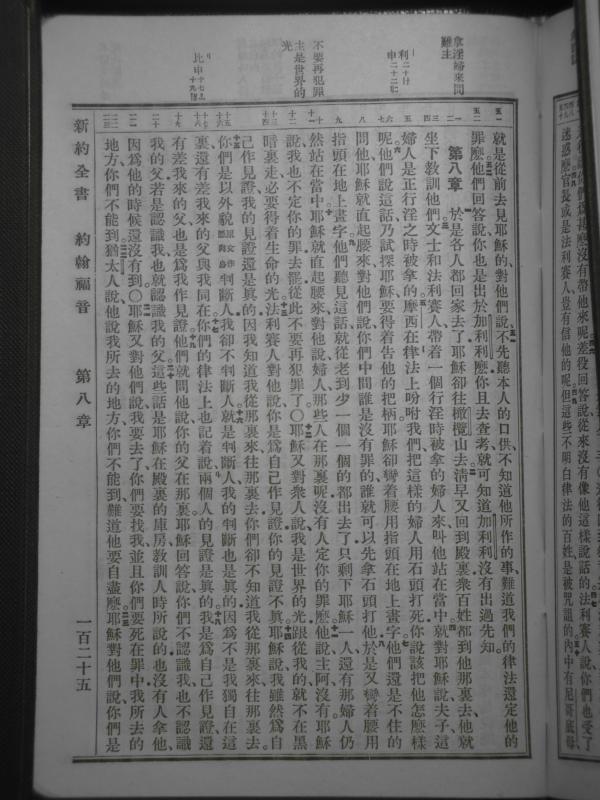 迷惑麽官長或是法利賽人豈有信他的呢但這些不明白律法的百姓是被咒詛的內中有尼哥底母
拿淫婦來問難主
利二十10
申二十二
不要再犯罪
主是世界的光
申十七
十九
就是從前去見耶穌的對他們說不先聽本人的口供不知道他所作的事難道我們的律法還定他的
罪麽他們回答說你也是出於加利利麽你且去查考就可知道加利利沒有出過先知
第八章 於是各人都回家去了耶穌卻往橄欖山去清早又回到殿裏衆百姓都到他那裏去他就
坐下教訓他們文士和法利賽人帶着一個行淫時被拿的婦人來叫他站在當中就對耶穌說夫子這
婦人是正行淫之時被拿的摩西在律法上吩咐我們把這樣的婦人用石頭打死你說該把他怎麽樣
呢他們說這話乃試探耶穌要得着告他的把柄耶穌卻彎着腰用指頭在地上畫字他們還是不住的
問他耶穌就直起腰來對他們說你們中間誰是沒有罪的誰就可以先拿石頭打他於是又彎着腰用
指頭在地上畫字他們聽見這話就從老到少一個一個的都出去了只剩下耶穌一人還有那婦人仍
然站在當中耶穌就直起腰來對他說婦人那些人在那裏呢沒有人定你的罪麽他說主阿沒有耶穌
說我也不定你的罪去罷從此不要再犯罪了○耶穌又對衆人說我是世界的光跟從我的就不在黑
暗裏走必要得着生命的光法利賽人對他說你是爲自己作見證你的見證不眞耶穌說我雖然爲自
己作見證我的見證還是眞的因我知道我從那裏來往那裏去你們卻不知道我從那裏來往那裏去
你們是以外貌原文作憑肉身判斷人我卻不判斷人就是判斷人我的判斷也是眞的因爲不是我獨自在這
裏還有差我來的父與我同在你們的律法上也記着說兩個人的見證是眞的我是爲自己作見證還
有差我來的父也是爲我作見證他們就問他說你的父在那裏耶穌回答說你們不認識我也不認識
我的父若是認識我也就認識我的父這些話是耶穌在殿裏的庫房教訓人時所說的也沒有人拿他
因爲他的時候還沒有到○耶穌又對他們說我要去了你們要找我並且你們要死在罪中我所去的
地方你們不能到猶太人說他說我所去的地方你們不能到難道他要自盡麽耶穌對他們說你們是
新約全書 約翰福音 第八章 一百二十五